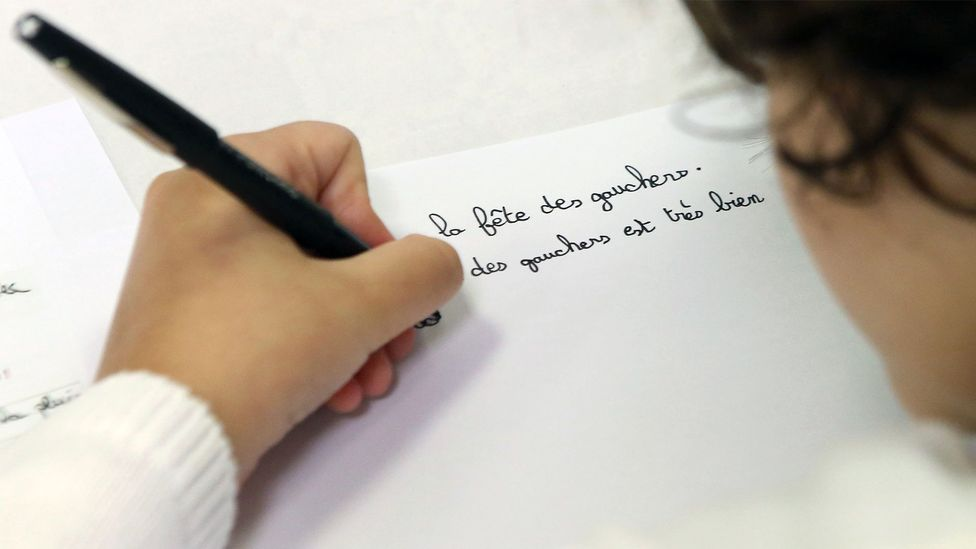 la fête des gauchers.
des gauchers est très bien